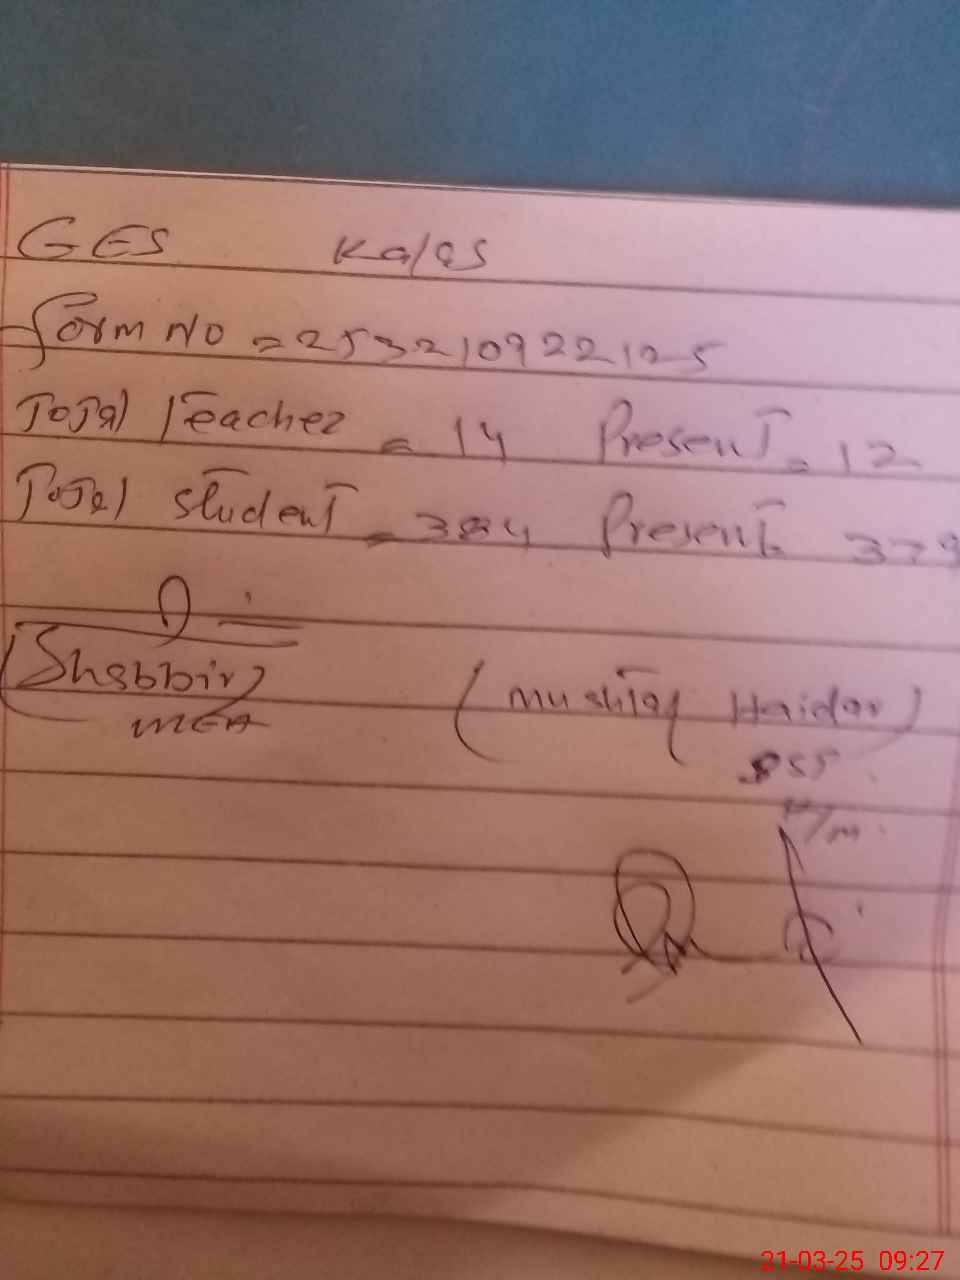 GES Kalas
Form No = 253210922125
Total Teacher = 14 Present = 12
Total student = 384 Present 379
(Shabbir) (Mushtaq Haidar)
MEA SST
H/m
21-03-25 09:27